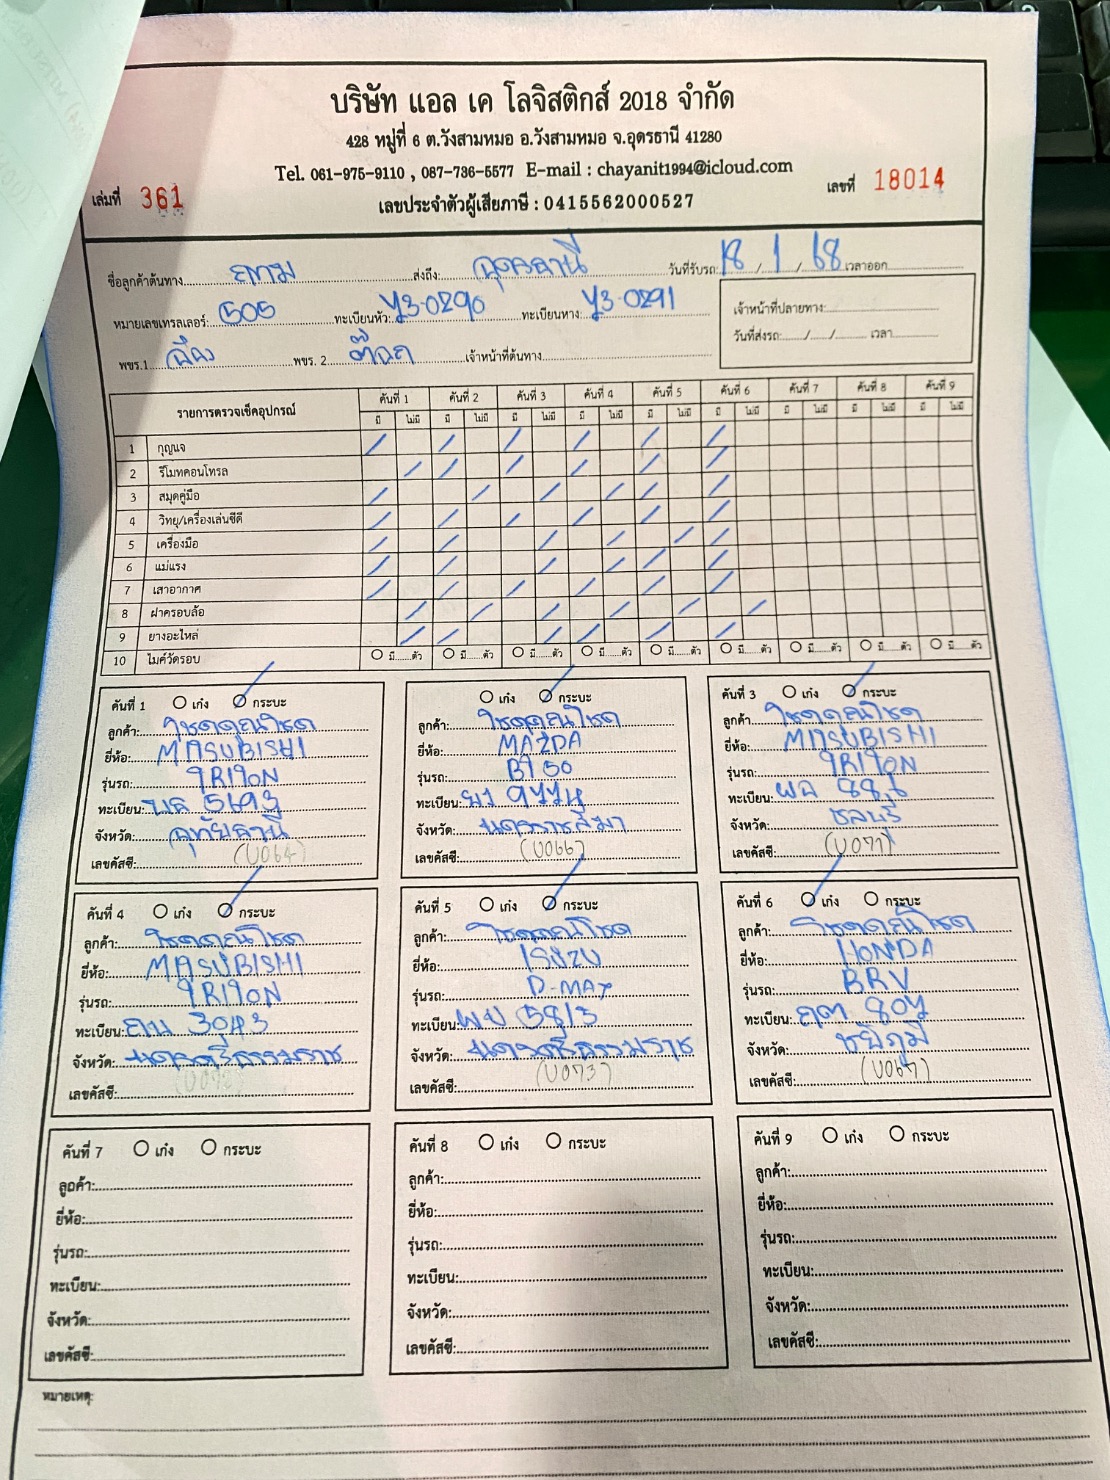 บริษัท แอล เค โลจิสติกส์ 2018 จำกัด
428 หมู่ที่ 6 ต.วังสามหมอ อ.วังสามหมอ จ.อุดรธานี 41280
Tel. 061-975-9110 , 087-736-5577 E-mail : chayanit1994@icloud.com
เล่มที่ 361
เลขที่ 18014
เลขประจำตัวผู้เสียภาษี : 0415562000527
ชื่อลูกค้าต้นทาง ส่งถึง: อุดรธานี วันที่รับรถ: 18 / 1 / 68 เวลาออก
หมายเลขเทรลเลอร์: 505 ทะเบียนหัว: 73-0290 ทะเบียนหาง: 73-0291
เจ้าหน้าที่ปลายทาง:
วันที่ส่งรถ: / / เวลา
พขร.1 พขร. 2 เจ้าหน้าที่ต้นทาง
รายการตรวจเช็คอุปกรณ์ คันที่ 1 คันที่ 2 คันที่ 3 คันที่ 4 คันที่ 5 คันที่ 6 คันที่ 7 คันที่ 8 คันที่ 9
มี ไม่มี มี ไม่มี มี ไม่มี มี ไม่มี มี ไม่มี มี ไม่มี มี ไม่มี มี ไม่มี มี ไม่มี
1 กุญแจ
2 รีโมทคอนโทรล
3 สมุดคู่มือ
4 วิทยุ/เครื่องเล่นซีดี
5 เครื่องมือ
6 แม่แรง
7 เสาอากาศ
8 ฝาครอบล้อ
9 ยางอะไหล่
10 ไมค์วัดรอบ มี......ตัว มี......ตัว มี......ตัว มี......ตัว มี......ตัว มี......ตัว มี......ตัว มี......ตัว มี......ตัว
คันที่ 1 เก๋ง กระบะ
ลูกค้า:
ยี่ห้อ: MITSUBISHI
รุ่นรถ: TRITON
ทะเบียน:
จังหวัด: อุทัยธานี
เลขคัสซี: (U064)
เก๋ง กระบะ
ลูกค้า:
ยี่ห้อ: MAZDA
รุ่นรถ: BT50
ทะเบียน:
จังหวัด: นครราชสีมา
เลขคัสซี: (U066)
คันที่ 3 เก๋ง กระบะ
ลูกค้า
ยี่ห้อ: MITSUBISHI
รุ่นรถ: TRITON
ทะเบียน:
จังหวัด: ชลบุรี
เลขคัสซี: (U071)
คันที่ 4 เก๋ง กระบะ
ลูกค้า:
ยี่ห้อ: MITSUBISHI
รุ่นรถ: TRITON
ทะเบียน: 3043
จังหวัด: นครศรีธรรมราช
เลขคัสซี:
คันที่ 5 เก๋ง กระบะ
ลูกค้า:
ยี่ห้อ: ISUZU
รุ่นรถ: D-MAX
ทะเบียน: 5813
จังหวัด: นครศรีธรรมราช
เลขคัสซี: (U073)
คันที่ 6 เก๋ง กระบะ
ลูกค้า:
ยี่ห้อ: HONDA
รุ่นรถ: BRV
ทะเบียน: 807
จังหวัด: ชัยภูมิ
เลขคัสซี: (U067)
คันที่ 7 เก๋ง กระบะ
ลูกค้า:
ยี่ห้อ:
รุ่นรถ:
ทะเบียน:
จังหวัด:
เลขคัสซี:
คันที่ 8 เก๋ง กระบะ
ลูกค้า:
ยี่ห้อ:
รุ่นรถ:
ทะเบียน:
จังหวัด:
เลขคัสซี:
คันที่ 9 เก๋ง กระบะ
ลูกค้า:
ยี่ห้อ:
รุ่นรถ:
ทะเบียน:
จังหวัด:
เลขคัสซี:
หมายเหตุ: